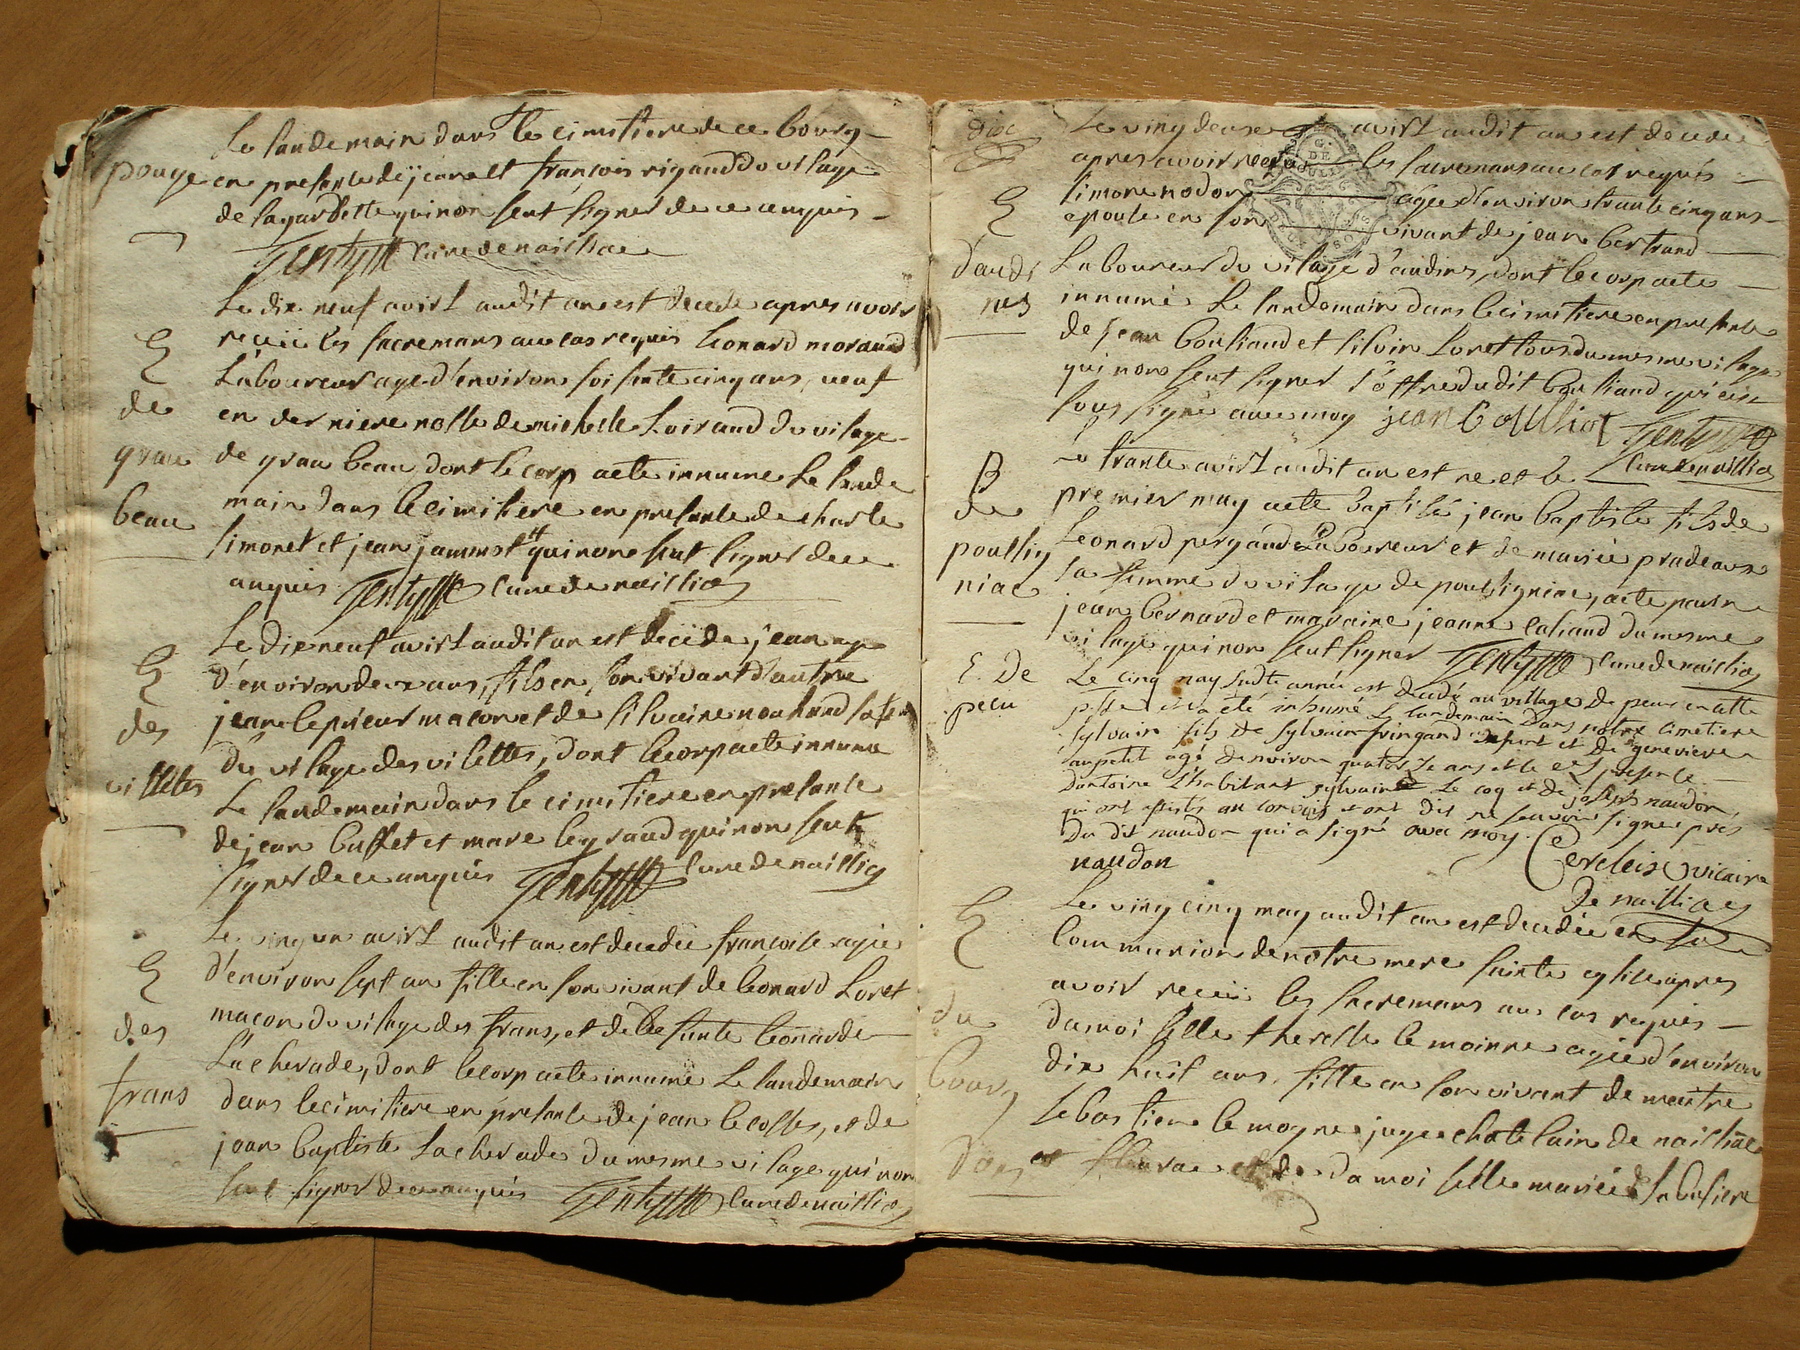 Le landemain dans le cimitiere de ce bourg
pouge
en presence de jean et françois rigaud du vilage
de lagardette qui non seut signer de ce anquis
curé de naillac
Le dix neuf avirl audit an est decedé apres avoir
E
receüe les sacremans au cas requis Leonard moraud
Laboureur agé d'environ soisante cinq ans, veuf
de
en derniere nosse de michelle Loiraud du vilage
grau
de grau beau dont le corp a ete innumé Le lande
beau
main dans le cimitiere en presante de charle
simonet et jean qui non seut signer de ce
anquis curé de naillac
Le dix neuf avirl audit an est decedé jean agé
E
d'environ deux ans, fils en son vivant d'autre
des
jean le prieur macon et de silvaine nouhaud sa
du vilage des vilettes, dont le corp a ete innumé
villetes
Le landemain dans le cimitiere en presante
de jean buffet et marc legraud qui non seut
signer de ce anquis curé de naillac
Le vingt un avirl audit an est decedée françoise agée
E
d'environ sept an fille en son vivant de Leonard Loret
des
macon du vilage des frans, et de defunte Leonarde
Lacherade, dont le corp a ete innumé Le landemain
frans
dans le cimitiere en presante de jean lecosse, et de
jean baptiste Lacherade du mesme vilage qui non
seut signer de ce anquis curé de naillac
dix
Le vingt deuse avirl audit an est decedé
apres avoir receu les sacremans au cas requis
E
simone nodon agée d'environ trante cinq ans
epouse en son vivant de jean bertrand
d'audi
Laboureur du vilage d'audines, dont le corp a ete
nes
innumé Le landemain dans le cimitiere en presante
de jean bouliaud et silvin Loret tous du mesme vilage
qui non seut signer l'offre dudit bouliaud qui cest
sous signé avec moy jean bouliot
curé de naillac
B
Le trante avirl audit an est né et le
de
premier may a ete baptisé jean baptiste fils de
poullig
Leonard pergaud Laboureur et de marie pradeaus
niac
sa femme du vilage de poulligniac, a ete parin
jean bernard et maraine jeanne cahaud du mesme
vilage qui non seut signer curé de naillac
E. De
peiu
Le cinq may susdte année est decedé au village de en cette
psse et a été inhumé le landemain dans notre cimetiere
sylvain fils de sylvain fringand defunt et de genevieve
aupetit agé denviron quatorze ans et le en presence
dantoine Lhabitant sylvain Le coq et de joseph naudon
qui ont assisté au convoi et ont dit ne scavoir signer près
Du dit naudon qui a signé avec moy. vicaire
naudon
De naillac
E
Le vingt cinq may audit an est decedée en la
communion de notre mere sainte eglise apres
du
avoir receüe les sacremans au cas requis
damoiselle theresse le moinne agée d'environ
bourg
dix huit ans, fille en son vivant de maitre
sebastien le moyne juge chatelain de naillac
et fleurac et de damoiselle marie de la busiere